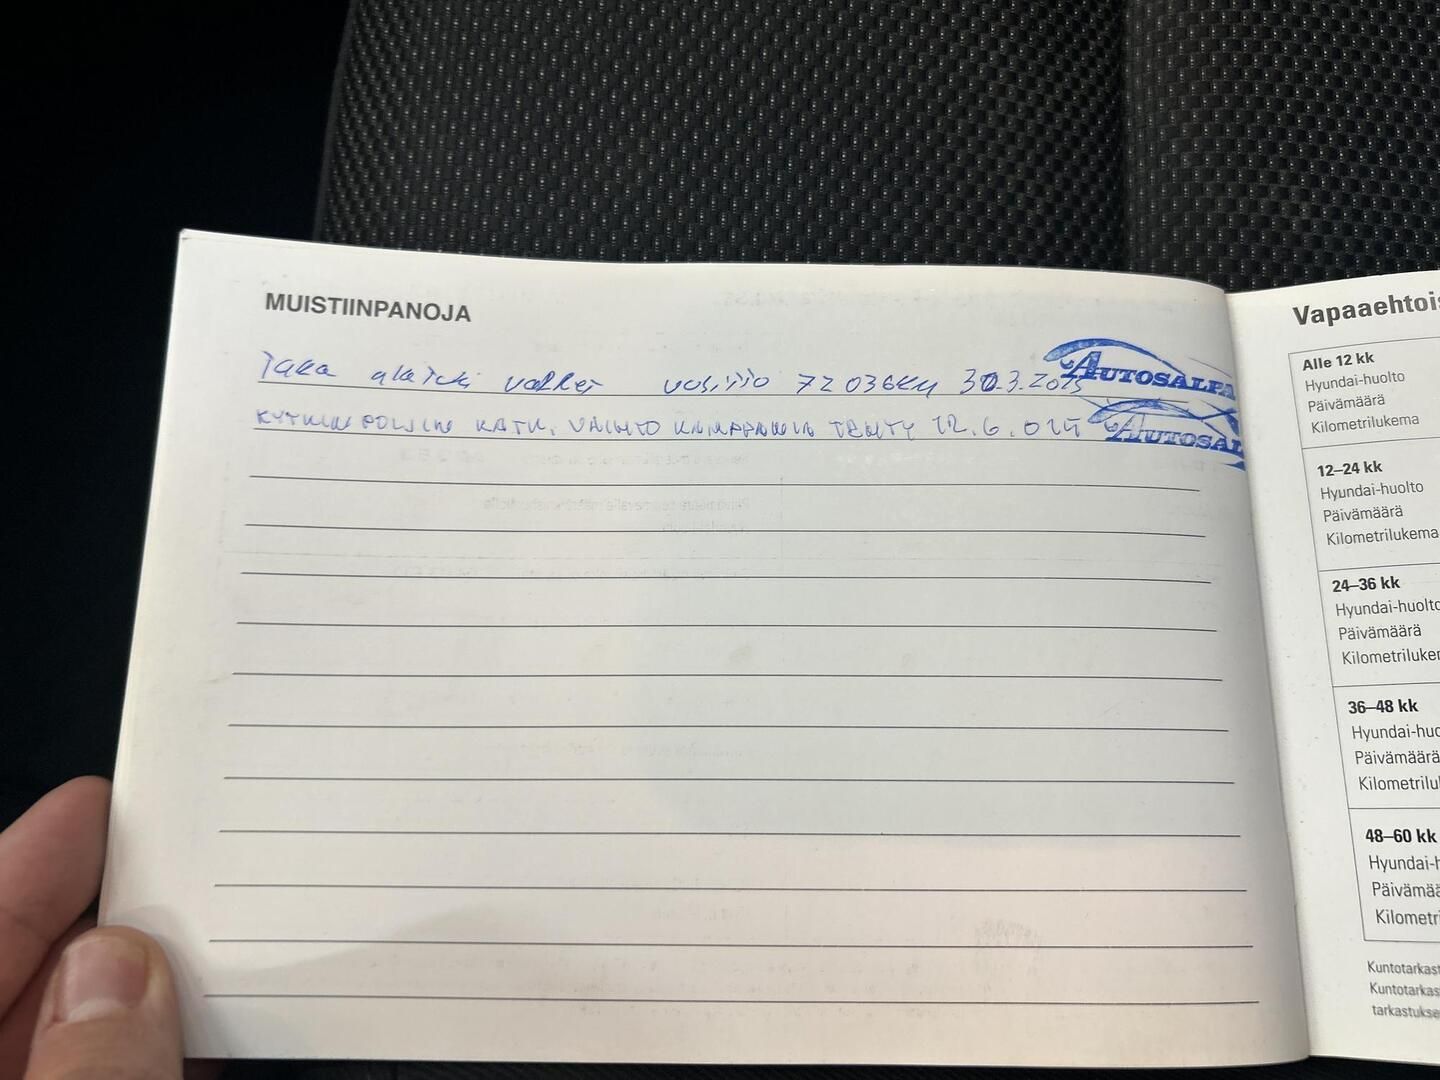 MUISTIINPANOJA
Taka alatuki vaihet vuosiiio 72 036km 30.3.2015
AUTOSALPA
KYTKINPOLJIN KATK. VAIHTO KAMPPANJA TEHTY 12.6.
AUTOSAL
Vapaaehtois
Alle 12 kk
Hyundai-huolto
Päivämäärä
Kilometrilukema
12–24 kk
Hyundai-huolto
Päivämäärä
Kilometrilukema
24–36 kk
Hyundai-huolto
Päivämäärä
Kilometriluker
36–48 kk
Hyundai-huo
Päivämäärä
Kilometrilul
48–60 kk
Hyundai-h
Päivämää
Kilometri
Kuntotarkast
Kuntotarkas
tarkastukse